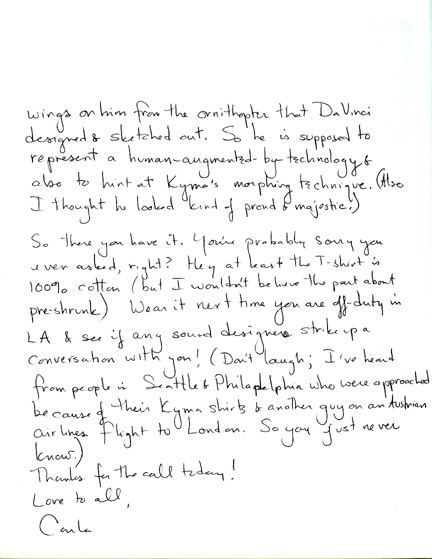 wings on him from the ornithopter that DaVinci
designed & sketched out. So he is supposed to
represent a human-augmented-by-technology &
also to hint at Kyma's morphing technique. (Also
I thought he looked kind of proud & majestic!)
So there you have it. You're probably sorry you
ever asked, right? Hey at least the T-shirt is
100% cotton (but I wouldn't believe the part about
pre-shrunk) Wear it next time you are off-duty in
LA & see if any sound designers strike up a
conversation with you! (Don't laugh; I've heard
from people in Seattle & Philadelphia who were approached
because of their Kyma shirts & another guy on an Austrian
airlines flight to London. So you just never
know.)
Thanks for the call today!
Love to all,
Carla